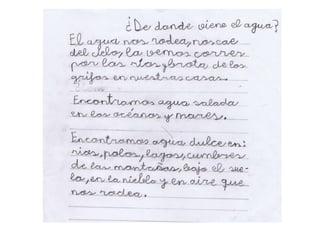 ¿De donde viene el agua?
El agua nos rodea, nos cae
del cielo, la vemos correr
por los ríos y brota de los
grifos en nuestras casas.
Encontramos agua salada
en los océanos y mares.
Encontramos agua dulce en:
ríos, polos, lagos, cumbres
de las montañas, bajo el sue-
lo, en la niebla y en aire que
nos rodea.